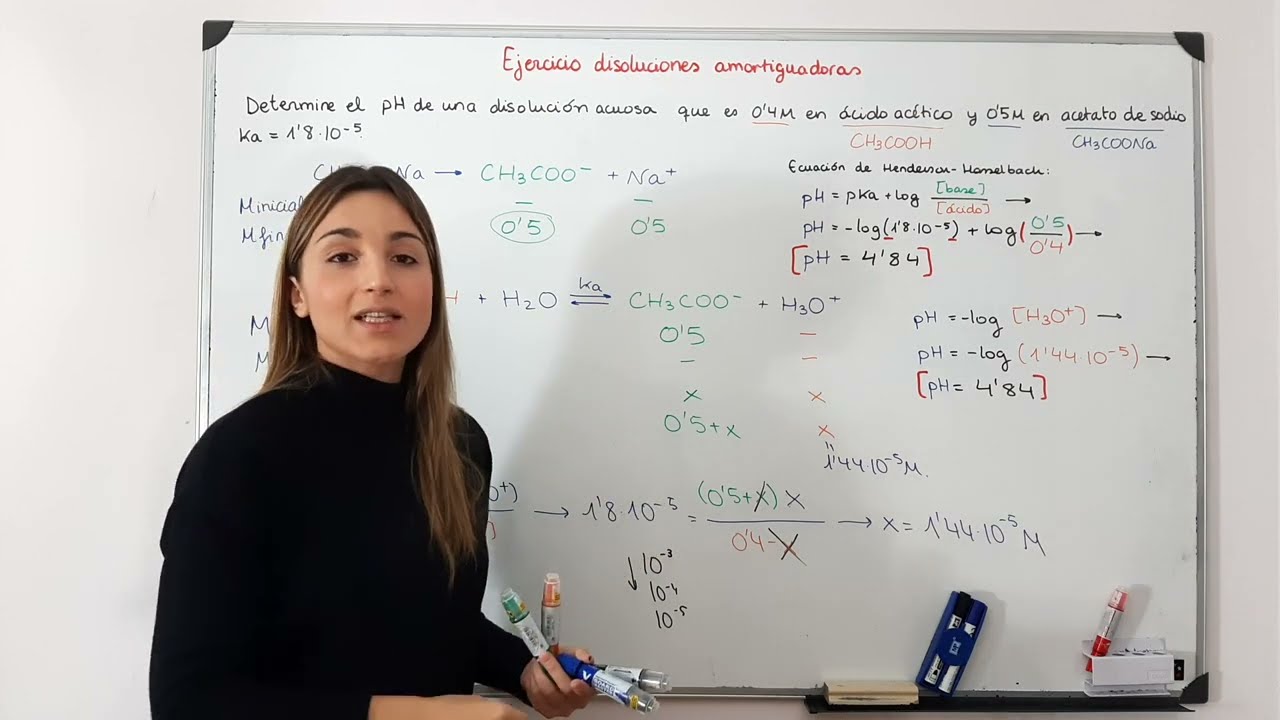 Ejercicio disoluciones amortiguadoras
Determine el pH de una disolución acuosa que es 0'4M en ácido acético y 0'5M en acetato de sodio
Ka = 1'8·10⁻⁵.
CH₃COOH
CH₃COONa
Na → CH₃COO⁻ + Na⁺
Minicial
— —
0'5 0'5
Ecuación de Henderson-Hasselbach:
pH = pKa + log [base]/[ácido] →
pH = -log(1'8·10⁻⁵) + log(0'5/0'4) →
[pH = 4'84]
H + H₂O ⇌ ka CH₃COO⁻ + H₃O⁺
M 0'5 —
M — —
x x
0'5+x x
"
1'44·10⁻⁵M.
pH = -log [H₃O⁺] →
pH = -log (1'44·10⁻⁵) →
[pH = 4'84]
O⁺) → 1'8·10⁻⁵ = (0'5+x) x / 0'4-x → x = 1'44·10⁻⁵ M
↓ 10⁻³
10⁻⁴
10⁻⁵